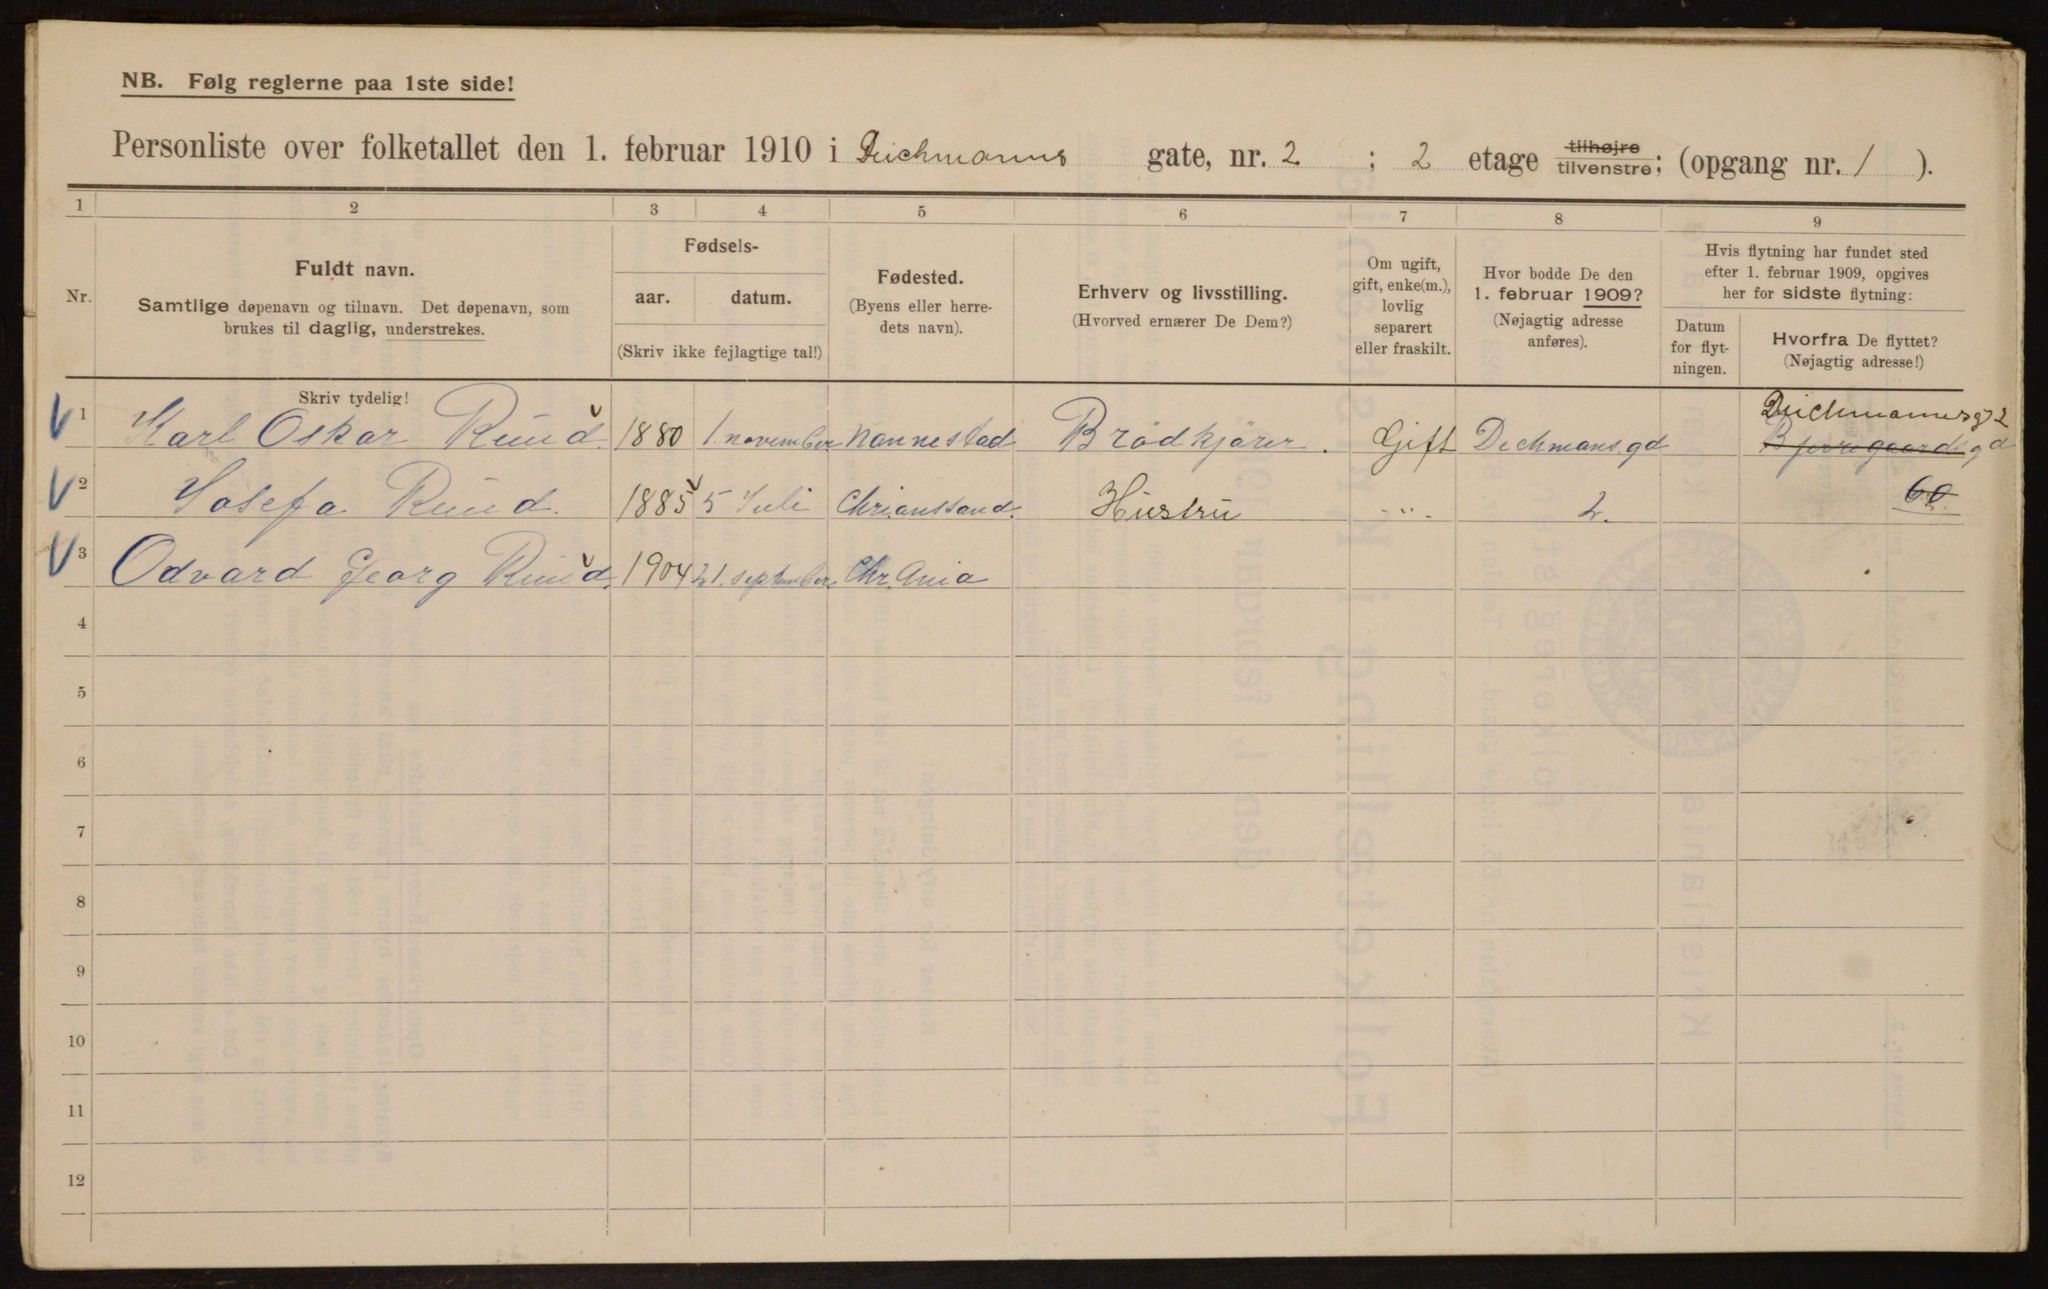 NB. Følg reglerne paa 1ste side!
Personliste over folketallet den 1. februar 1910 i Deichmanns gate, nr. 2 ; 2 etage tilhøjre tilvenstre; (opgang nr. 1 ).
1 2 3 4 5 6 7 8 9
Nr.
Fuldt navn.
Samtlige døpenavn og tilnavn. Det døpenavn, som
brukes til daglig, understrekes.
Skriv tydelig!
Fødsels-
aar. datum.
(Skriv ikke fejlagtige tal!)
Fødested.
(Byens eller herre-
dets navn).
Erhverv og livsstilling.
(Hvorved ernærer De Dem?)
Om ugift,
gift, enke(m.),
lovlig
separert
eller fraskilt.
Hvor bodde De den
1. februar 1909?
(Nøjagtig adresse
anføres).
Hvis flytning har fundet sted
efter 1. februar 1909, opgives
her for sidste flytning:
Datum
for flyt-
ningen.
Hvorfra De flyttet?
(Nøjagtig adresse!)
Deichmannsg 2
1 Karl Oskar Ruud 1880 1. november Nannestad Brødkjører. Gift Dechmans.gd
2 Josefa Ruud. 1885 5 Juli Chrianssand. Hustru -"- 2. 60
3 Odvard Georg Ruud. 1904 21. september Chr.Ania
4
5
6
7
8
9
10
11
12